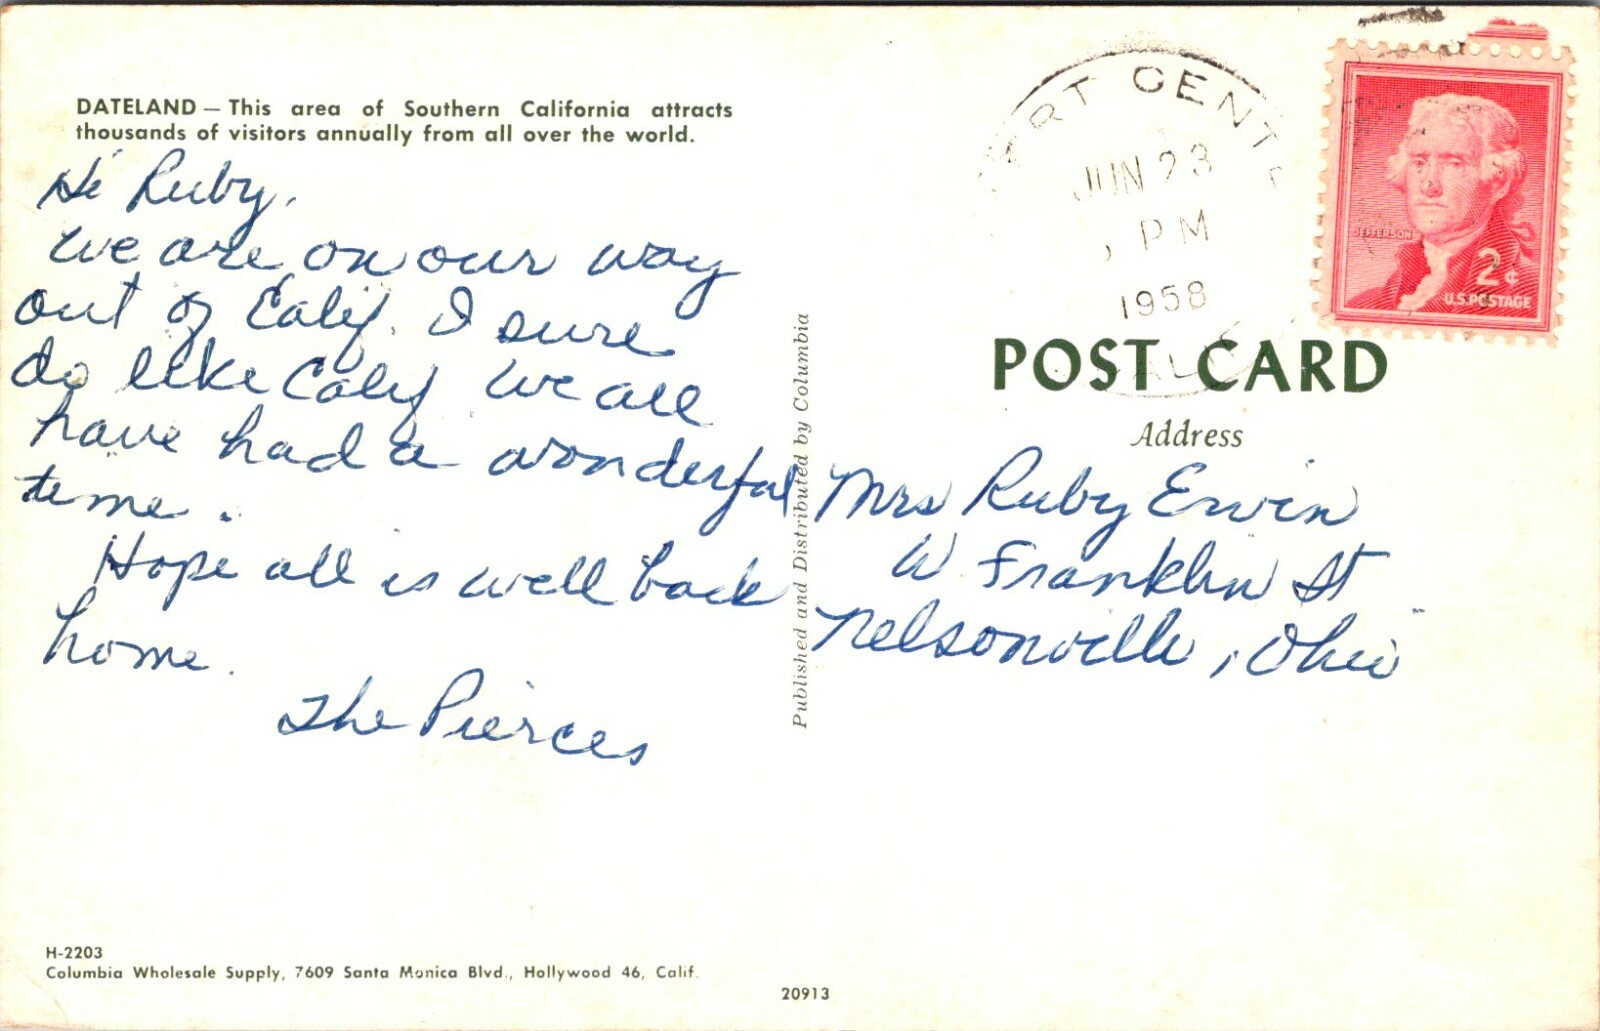 DATELAND — This area of Southern California attracts
thousands of visitors annually from all over the world.
Hi Ruby,
We are on our way
out of Calif. I sure
do like Calif We all
have had a wonderful
time.
Hope all is well back
home.
The Pierces
H-2203
Columbia Wholesale Supply, 7609 Santa Monica Blvd., Hollywood 46, Calif.
20913
Published and Distributed by Columbia
JUN 23
PM
1958
JEFFERSON
2¢
U.S. POSTAGE
POST CARD
Address
Mrs Ruby Erwin
W Franklin St
Nelsonville, Ohio